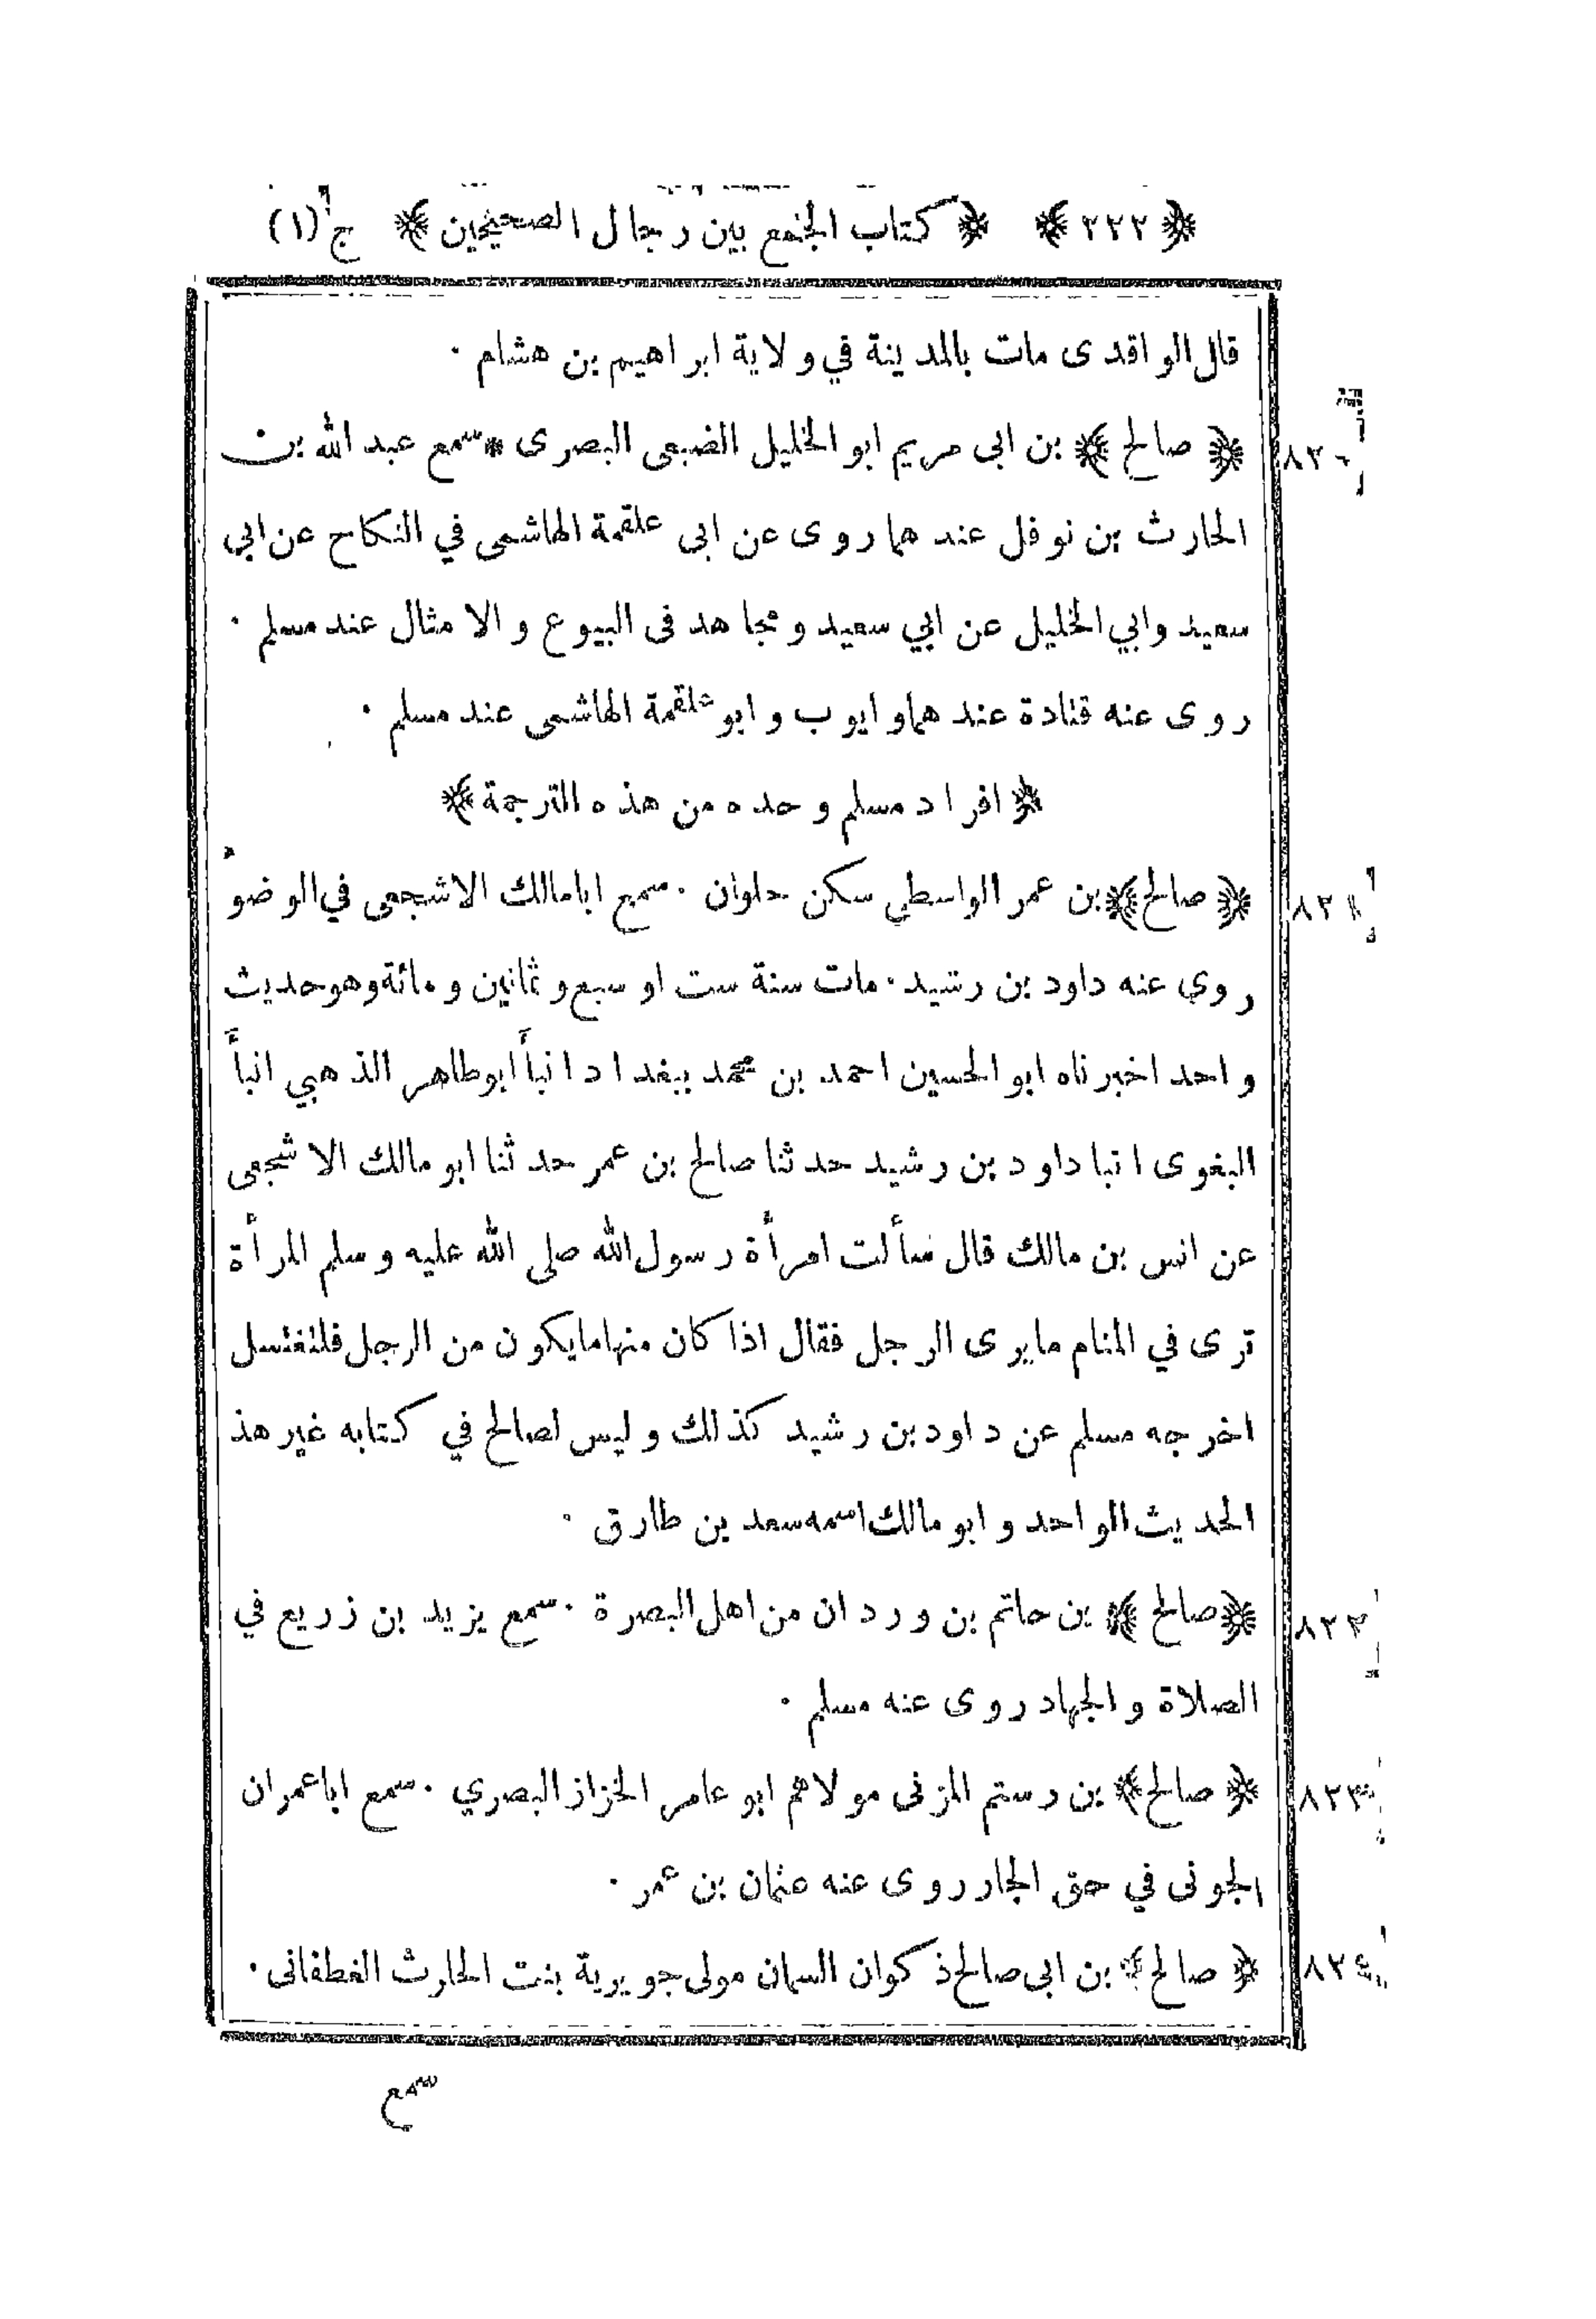 ﴿ ٢٢٢ ﴾ ﴿ كتاب الجمع بين رجال الصحيحين ﴾ ج (١)
قال الواقدى مات بالمدينة في ولاية ابراهيم بن هشام ٠
٨٢٠ ﴿ صالح ﴾ بن ابى مريم ابو الخليل الضبعى البصرى * سمع عبد الله بن
الحارث بن نوفل عندهما روى عن ابى علقمة الهاشمى في النكاح عن ابي
سعيد وابي الخليل عن ابي سعيد ومجاهد فى البيوع والامثال عند مسلم ٠
روى عنه قتادة عندهما وايوب وابو علقمة الهاشمى عند مسلم ٠
﴿ افراد مسلم وحده من هذه الترجمة ﴾
٨٢١ ﴿ صالح ﴾ بن عمر الواسطي سكن حلوان ٠ سمع ابا مالك الاشجعى في الوضوء
روي عنه داود بن رشيد ٠ مات سنة ست او سبع وثمانين ومائة وهو حديث
واحد اخبرناه ابو الحسين احمد بن محمد ببغداد انبأ ابو طاهر الذهبي انبأ
البغوى انبا داود بن رشيد حدثنا صالح بن عمر حدثنا ابو مالك الاشجعى
عن انس بن مالك قال سألت امرأة رسول الله صلى الله عليه وسلم المرأة
ترى في المنام ما يرى الرجل فقال اذا كان منها ما يكون من الرجل فلتغتسل
اخرجه مسلم عن داود بن رشيد كذلك وليس لصالح في كتابه غير هذ
الحديث الواحد وابو مالك اسمه سعد بن طارق ٠
٨٢٢ ﴿ صالح ﴾ بن حاتم بن وردان من اهل البصرة ٠ سمع يزيد بن زريع في
الصلاة والجهاد روى عنه مسلم ٠
٨٢٣ ﴿ صالح ﴾ بن رستم المزنى مولاهم ابو عامر الخزاز البصري ٠ سمع ابا عمران
الجونى في حق الجار روى عنه عثمان بن عمر ٠
٨٢٤ ﴿ صالح ﴾ بن ابى صالح ذكوان السمان مولى جويرية بنت الحارث الغطفانى ٠
سمع